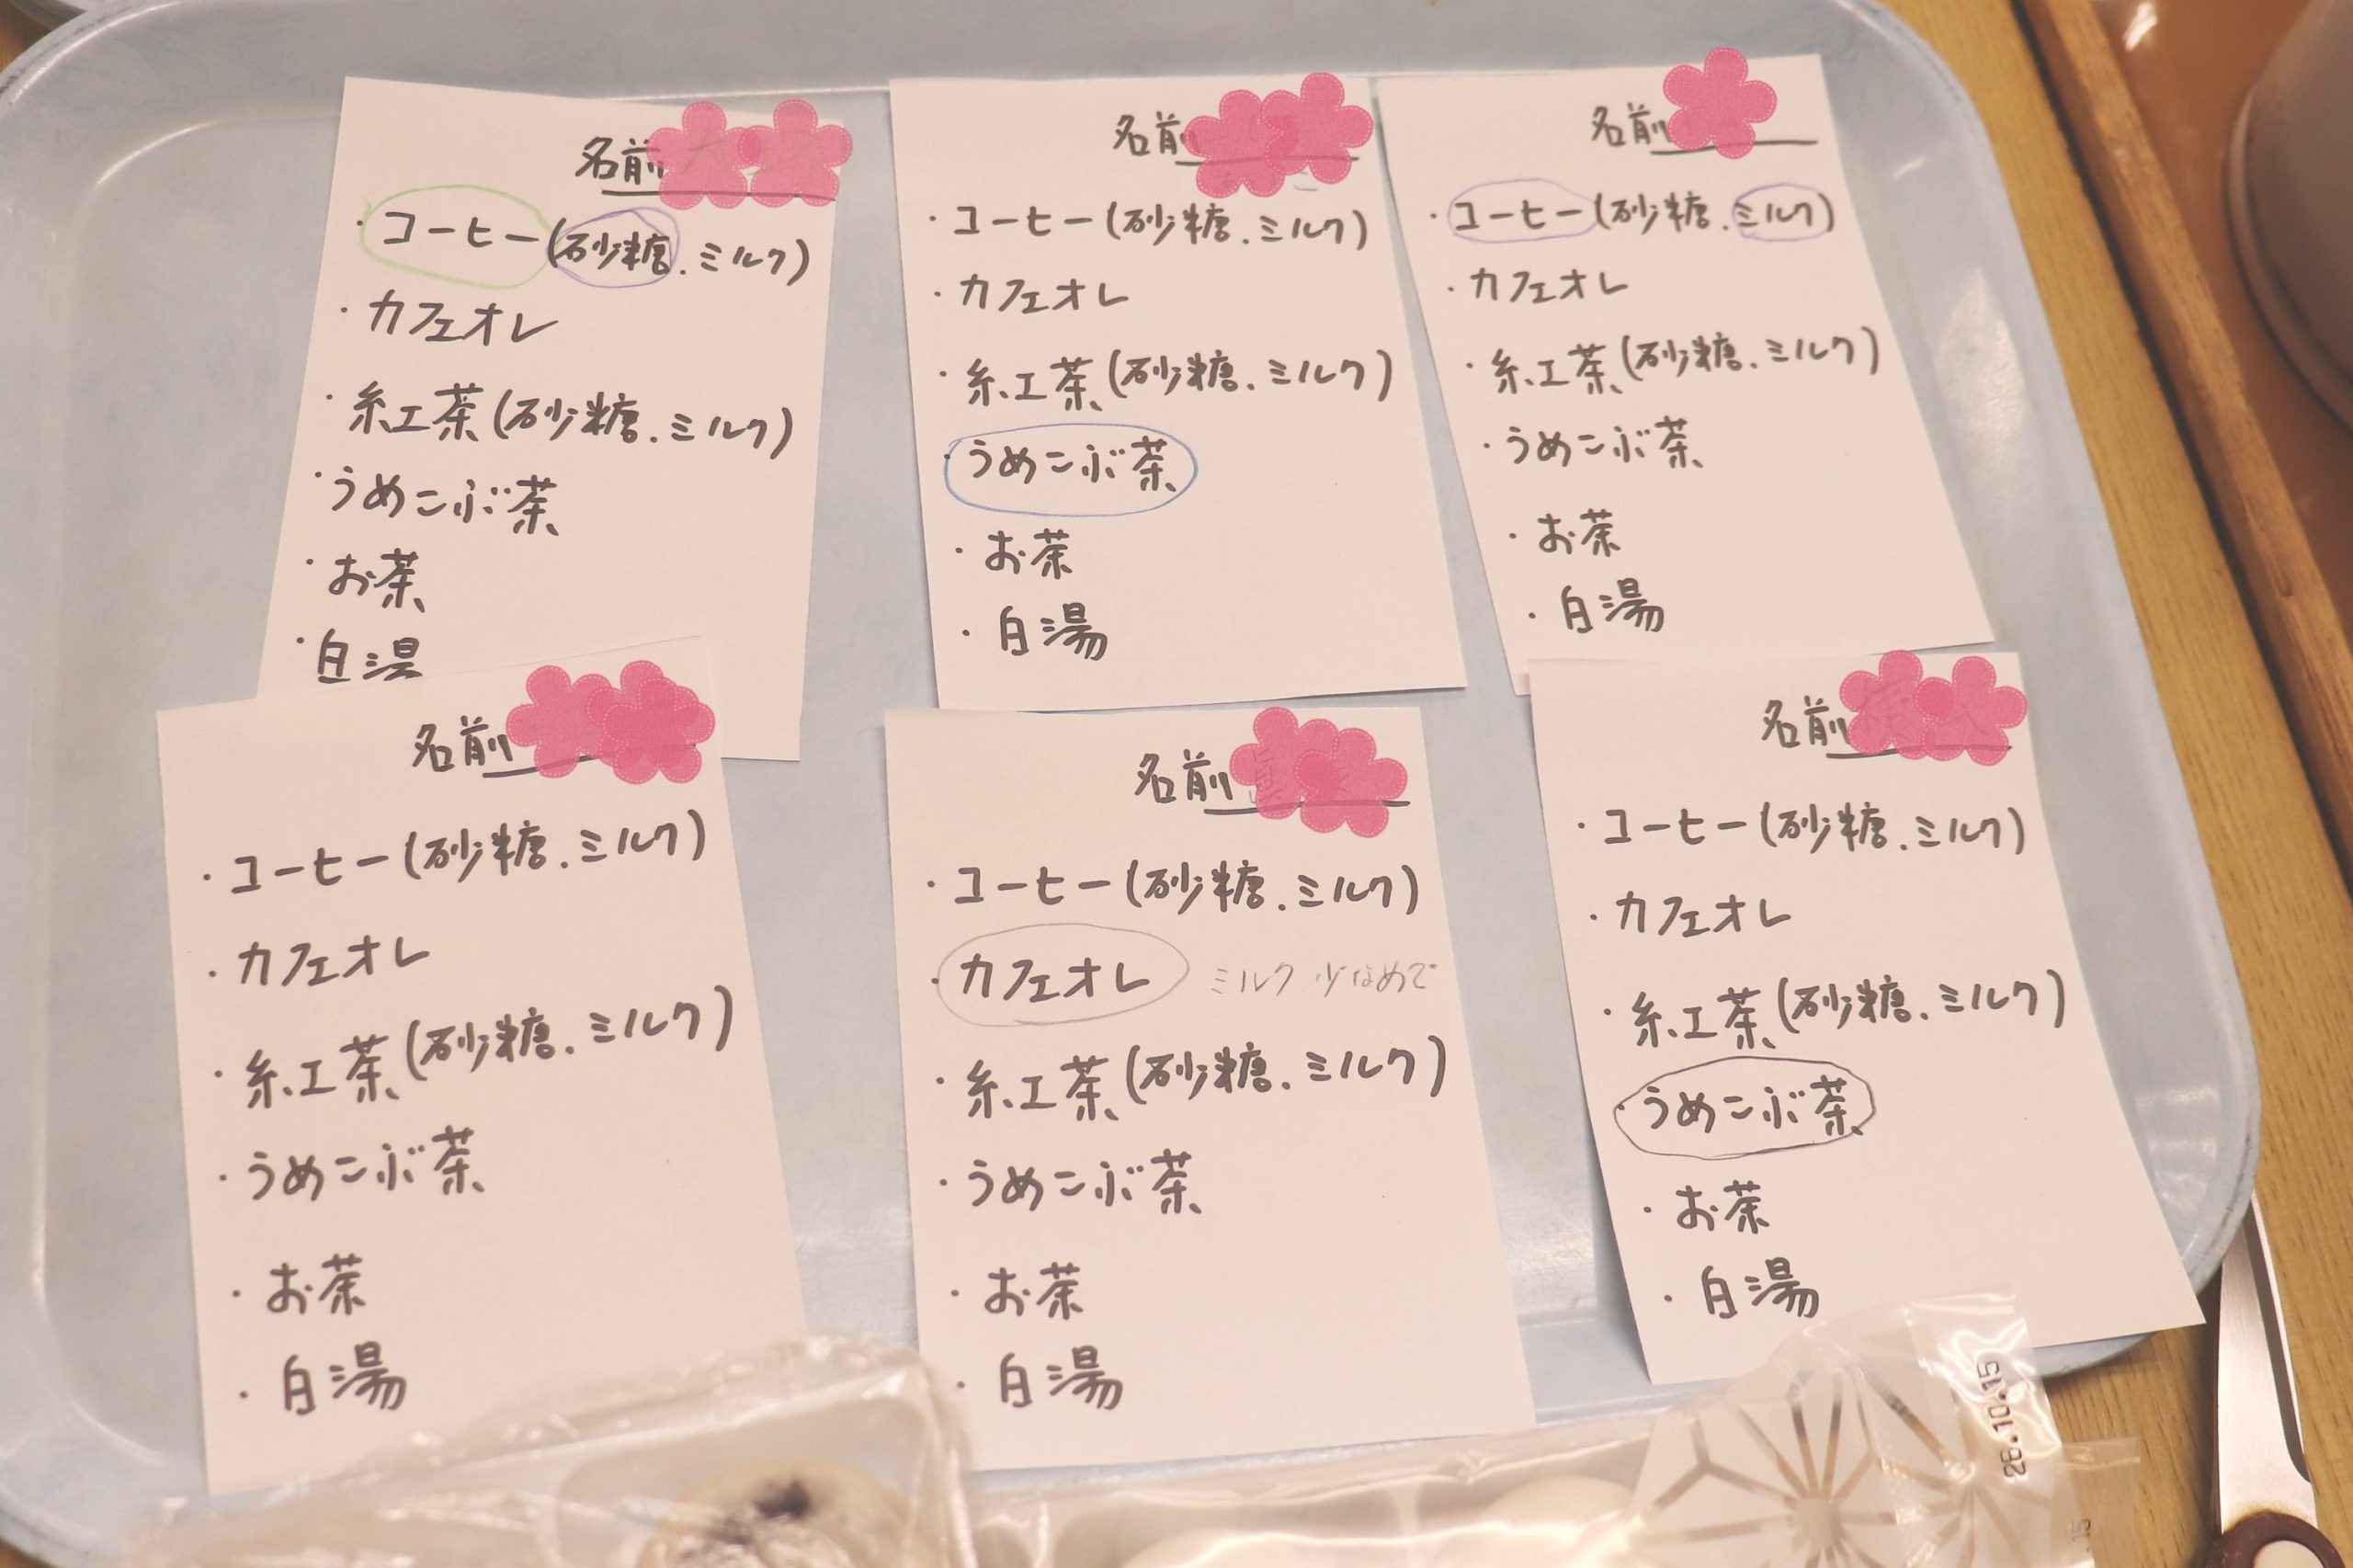 名前
・コーヒー(砂糖.ミルク)
・カフェオレ
・紅茶(砂糖.ミルク)
・うめこぶ茶
・お茶
・白湯
名前
・コーヒー(砂糖.ミルク)
・カフェオレ
・紅茶(砂糖.ミルク)
・うめこぶ茶
・お茶
・白湯
名前
・コーヒー(砂糖.ミルク)
・カフェオレ
・紅茶(砂糖.ミルク)
・うめこぶ茶
・お茶
・白湯
名前
・コーヒー(砂糖.ミルク)
・カフェオレ
・紅茶(砂糖.ミルク)
・うめこぶ茶
・お茶
・白湯
名前
・コーヒー(砂糖.ミルク)
・カフェオレ ミルク少なめで
・紅茶(砂糖.ミルク)
・うめこぶ茶
・お茶
・白湯
名前
・コーヒー(砂糖.ミルク)
・カフェオレ
・紅茶(砂糖.ミルク)
・うめこぶ茶
・お茶
・白湯
26.10.15